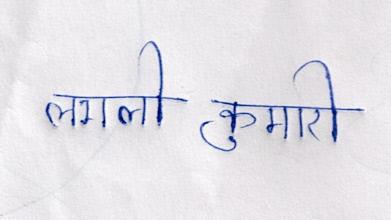 लगली कुमारी